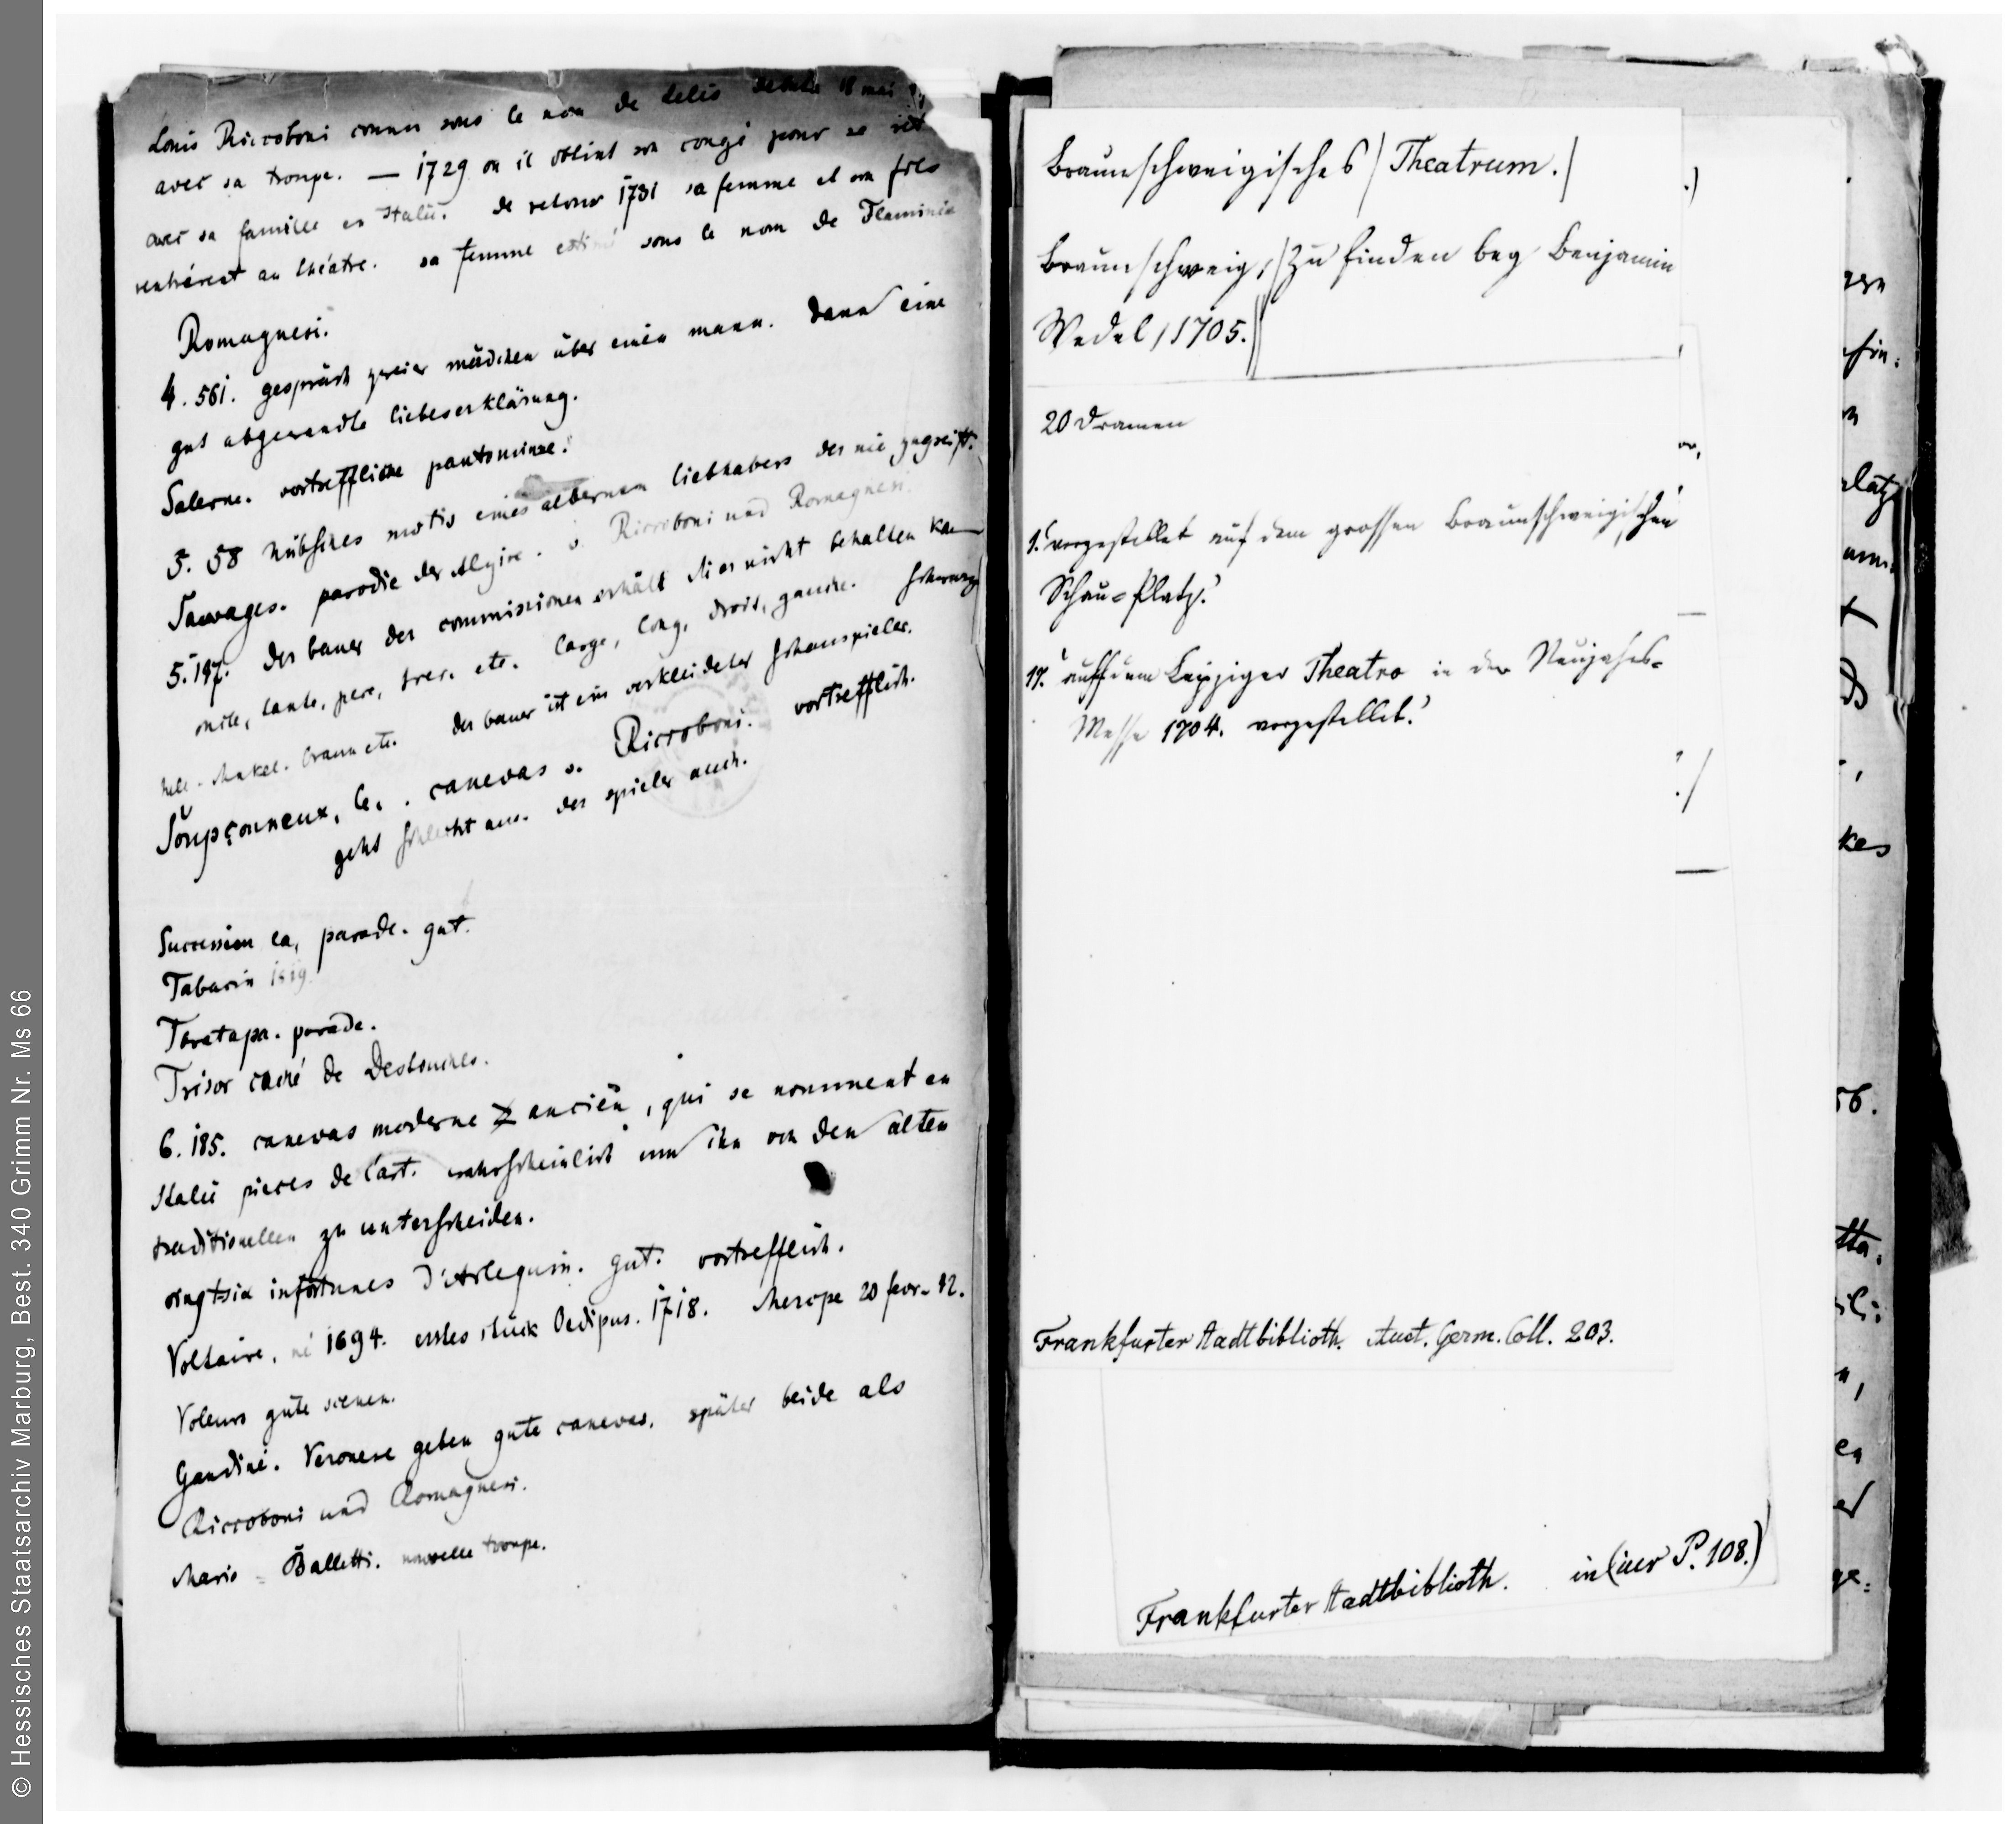 Louis Riccoboni connu sous le nom de Lelio debute 18 mai
avec sa troupe. — 1729 ou il obtint son congé pour se
avec sa famille en Italie. de retour 1731 sa femme et son fils
rentrèrent au théatre. sa femme sous le nom de Flaminia
Romagnesi.
4. 561. gespräch zweier mädchen über einen mann. dann eine
gut abgewandte liebeserklärung.
Salerne. vortreffliche pantomime.
5. 58 hübsches motiv eines albernen liebhabers der nie zugreift.
Sauvages. parodie der Alzire. v. Riccoboni und Romagnesi.
5. 197. der bauer der commissionen erhält die er nicht behalten
oncle, tante, pere, frer. etc. large, long, droit, gauche. schwarz
hell. dunkel. braun etc. der bauer ist ein verkleideter schauspieler.
Soupçonneux, le. canevas v. Riccoboni. vortrefflich.
geht schlecht aus. der spieler auch.
Succession la, parade. gut.
Tabarin 1619.
Taratapa. parade.
Trésor caché de Destouches.
6. 185. canevas moderne ancien, qui se nomment en
Italie pieces de l'art. wahrscheinlich um ihn von den alten
traditionellen zu unterscheiden.
vingtsix infortunes d'Arlequin. gut. vortrefflich.
Voltaire, né 1694. erstes stück Oedipus. 1718. Merope 20 fevr. 42.
Voleurs gute scenen.
Gandini. Veronese geben gute canevas. später beide als
Riccoboni und Romagnesi.
Mario = Balletti. nouvelle troupe.
Braunschweigisches / Theatrum. /
Braunschweig, / Zu finden bey Benjamin
Wedel / 1705. //
20 Dramen
1. 'vorgestellet auf dem grossen Braunschweigischen
Schau=Platz.'
17. 'auff dem Leipziger Theatro in der Neujahrs=
Messe 1704. vorgestellet.'
Frankfurter Stadtbiblioth. Auct. Germ. Coll. 203.
Frankfurter Stadtbiblioth. in P. 108.)
.)
gen
platz
kes
56.
tta.
en
ge=
© Hessisches Staatsarchiv Marburg, Best. 340 Grimm Nr. Ms 66